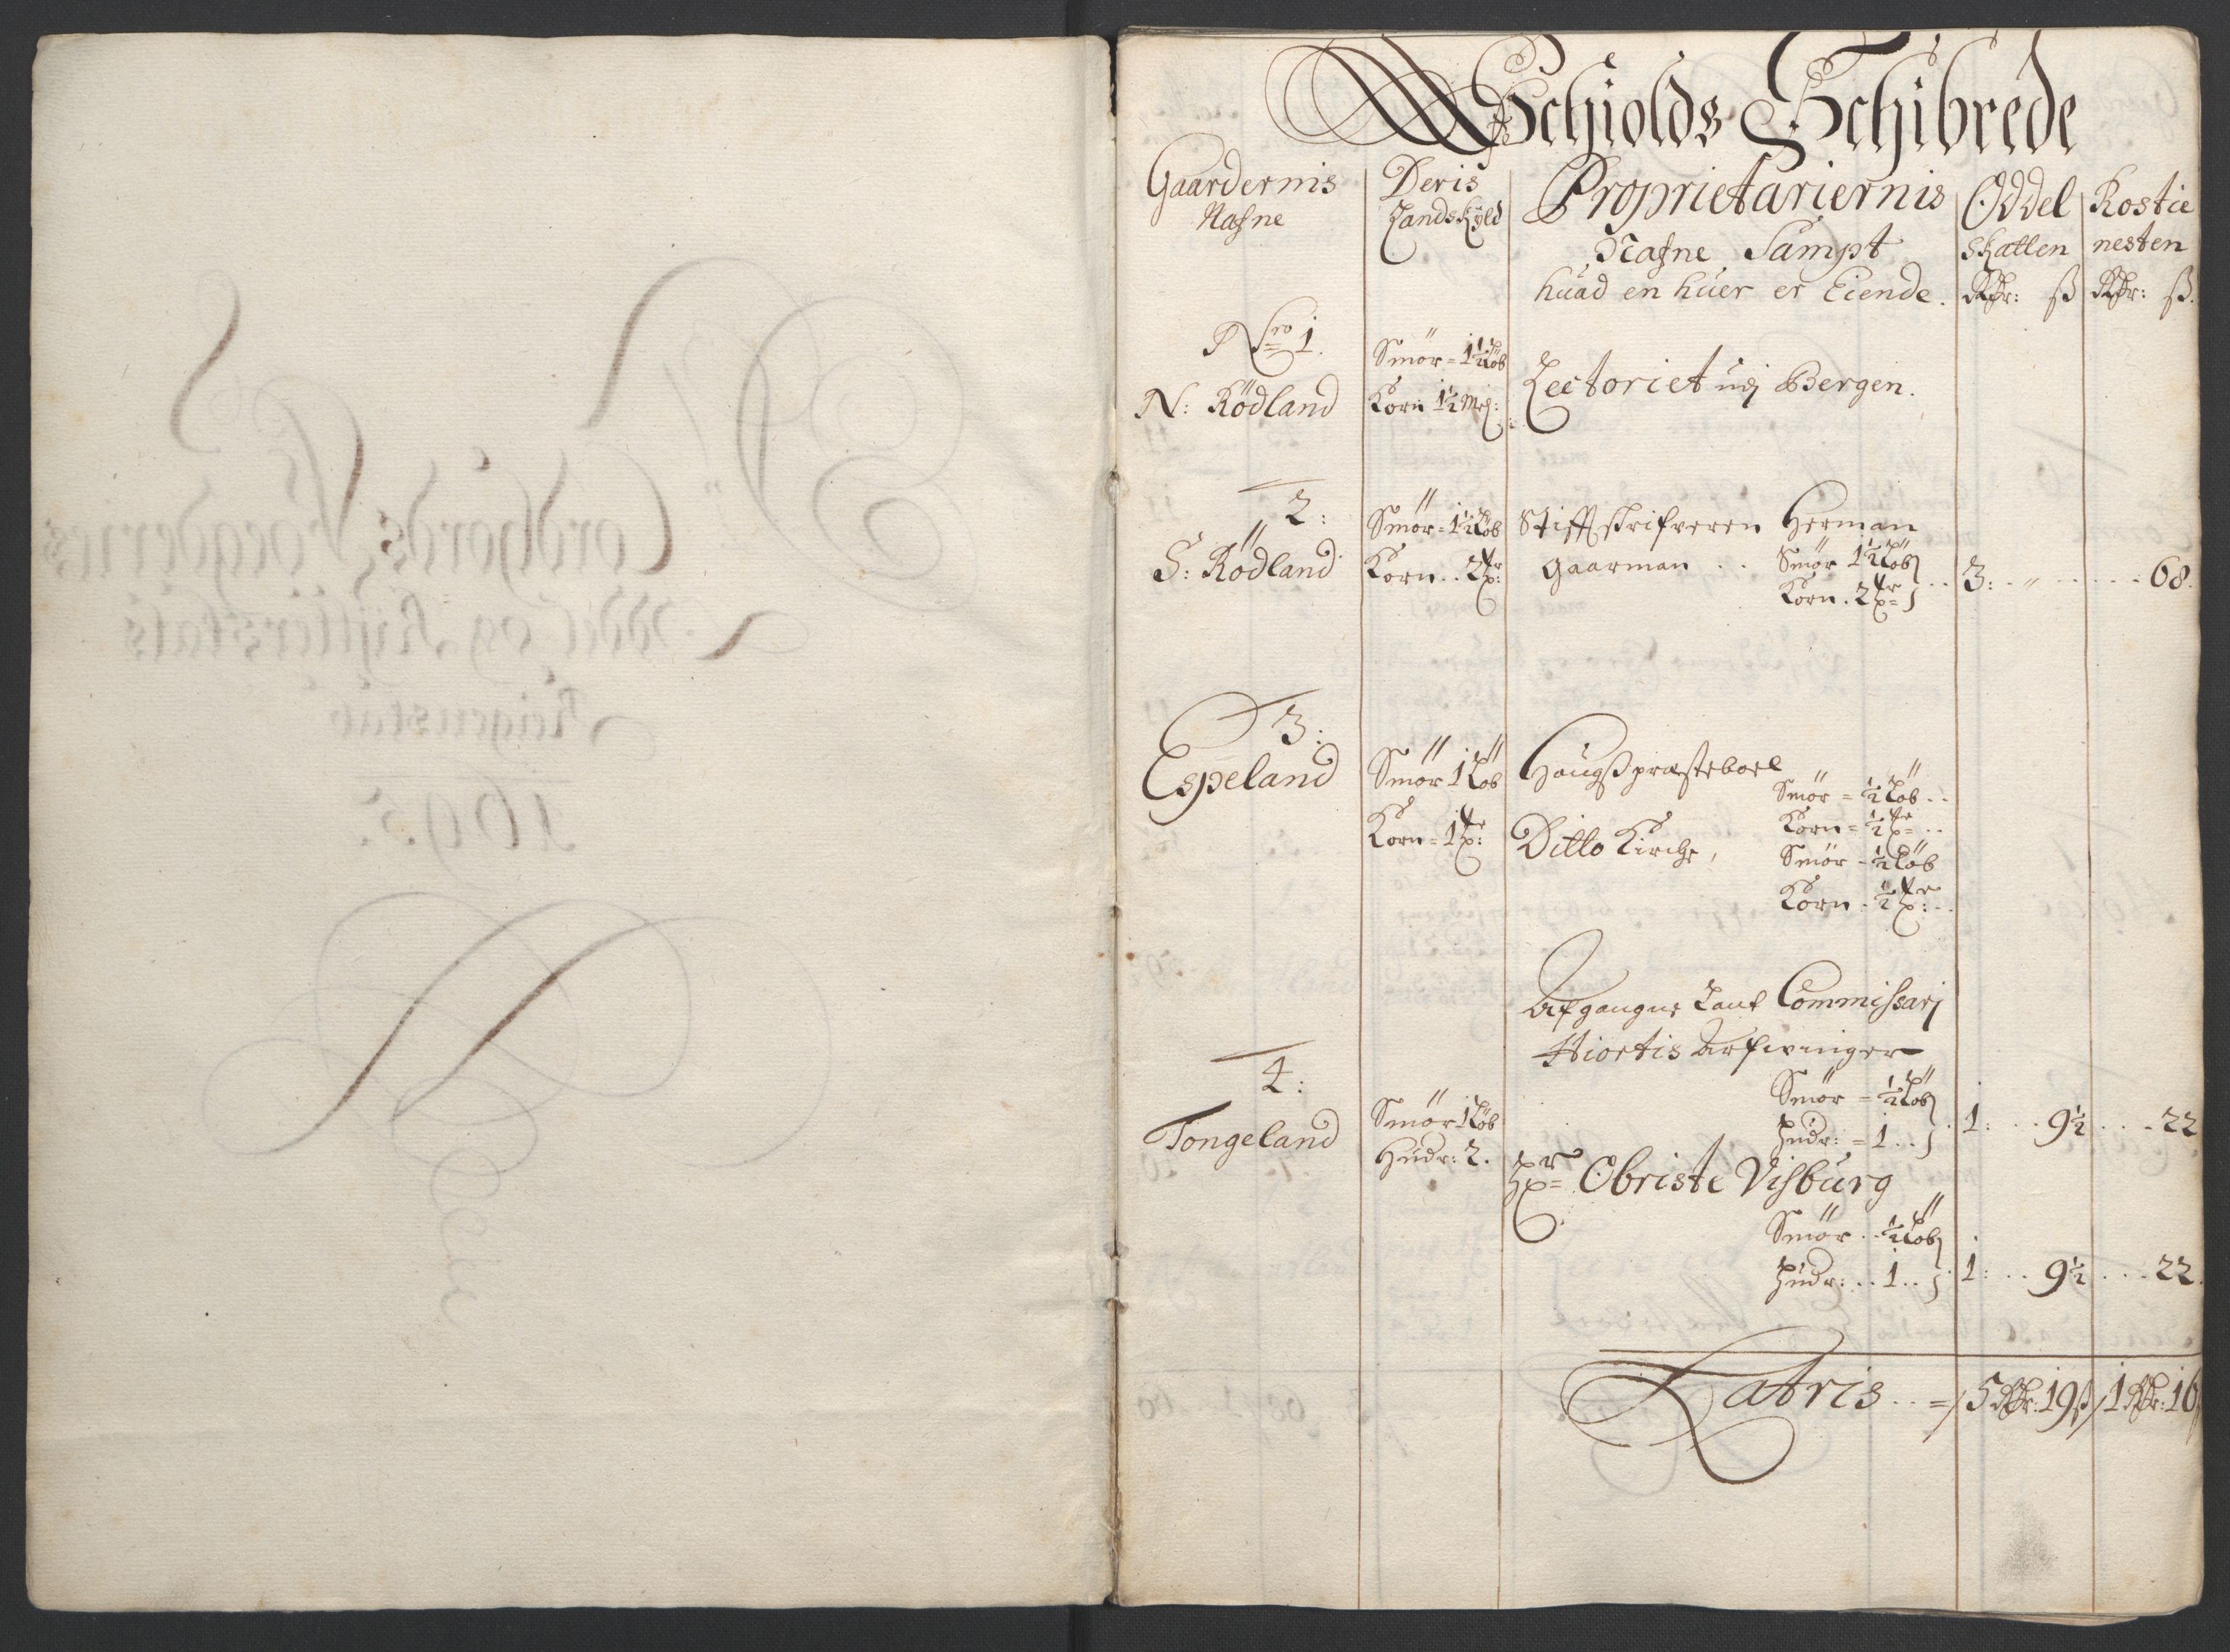 Schiolds Schibrede
Gaardernis Nafne
Deris Landskyld
Proprietariernis Nafne Sampt
huad en huer er Eiende.
Oddel skatten Rdr: ß
Rostie nesten Rdr: ß.
Nro 1.
N: Rödland
Smör = 1½ Löb
Korn 1½
Lectoriet udj Bergen.
2:
S: Rödland
Smör = 1½ Löb
Korn .. 2
Stiftskrifveren Herman
Gaarman .. Smör 1½ Löb
Korn . 2
3: - " - 68.
3:
Espeland
Smör 1 Löb
Korn = 1
Hougs præsteboel
Smör = ½ Löb ..
Korn = ½
Ditto Kirche,
Smör - ½ Löb
Korn - ½
4:
Tongeland
Smör 1 Löb
Hudr: 2.
Afgangne Commissarj
Hiortis Arfvinger
Smör = ½ Löb
Hudr: = 1 ..
1: .. 9½ ... 22
Hr= Obriste Visburg
Smör .. ½ Löb
Hudr: .. 1 ..
1: .. 9½ ... 22.
Latris .. = / 5 Rdr: 19 ß / 1 Rdr: 16
Nordhords Foegderies
Oddel og Rytterskats
1695.